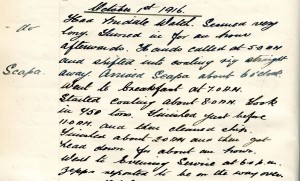 October 1st 1916.
Had Middle Watch. Seemed very
long. Turned in for an hour
afterwards. Hands called at 5.0 AM
and shifted into coaling rig straight
away. Arrived Scapa about 6 o'clock.
Scapa.
Went to breakfast at 7.0 AM.
Started coaling about 8.0 AM. Took
in 450 tons. Finished just before
11.0 AM. and then cleaned ship.
Finished about 2.0 AM and then got
head down for about an hour.
Went to Evening Service at 6 p.m.
Zepps reported to be on the way over